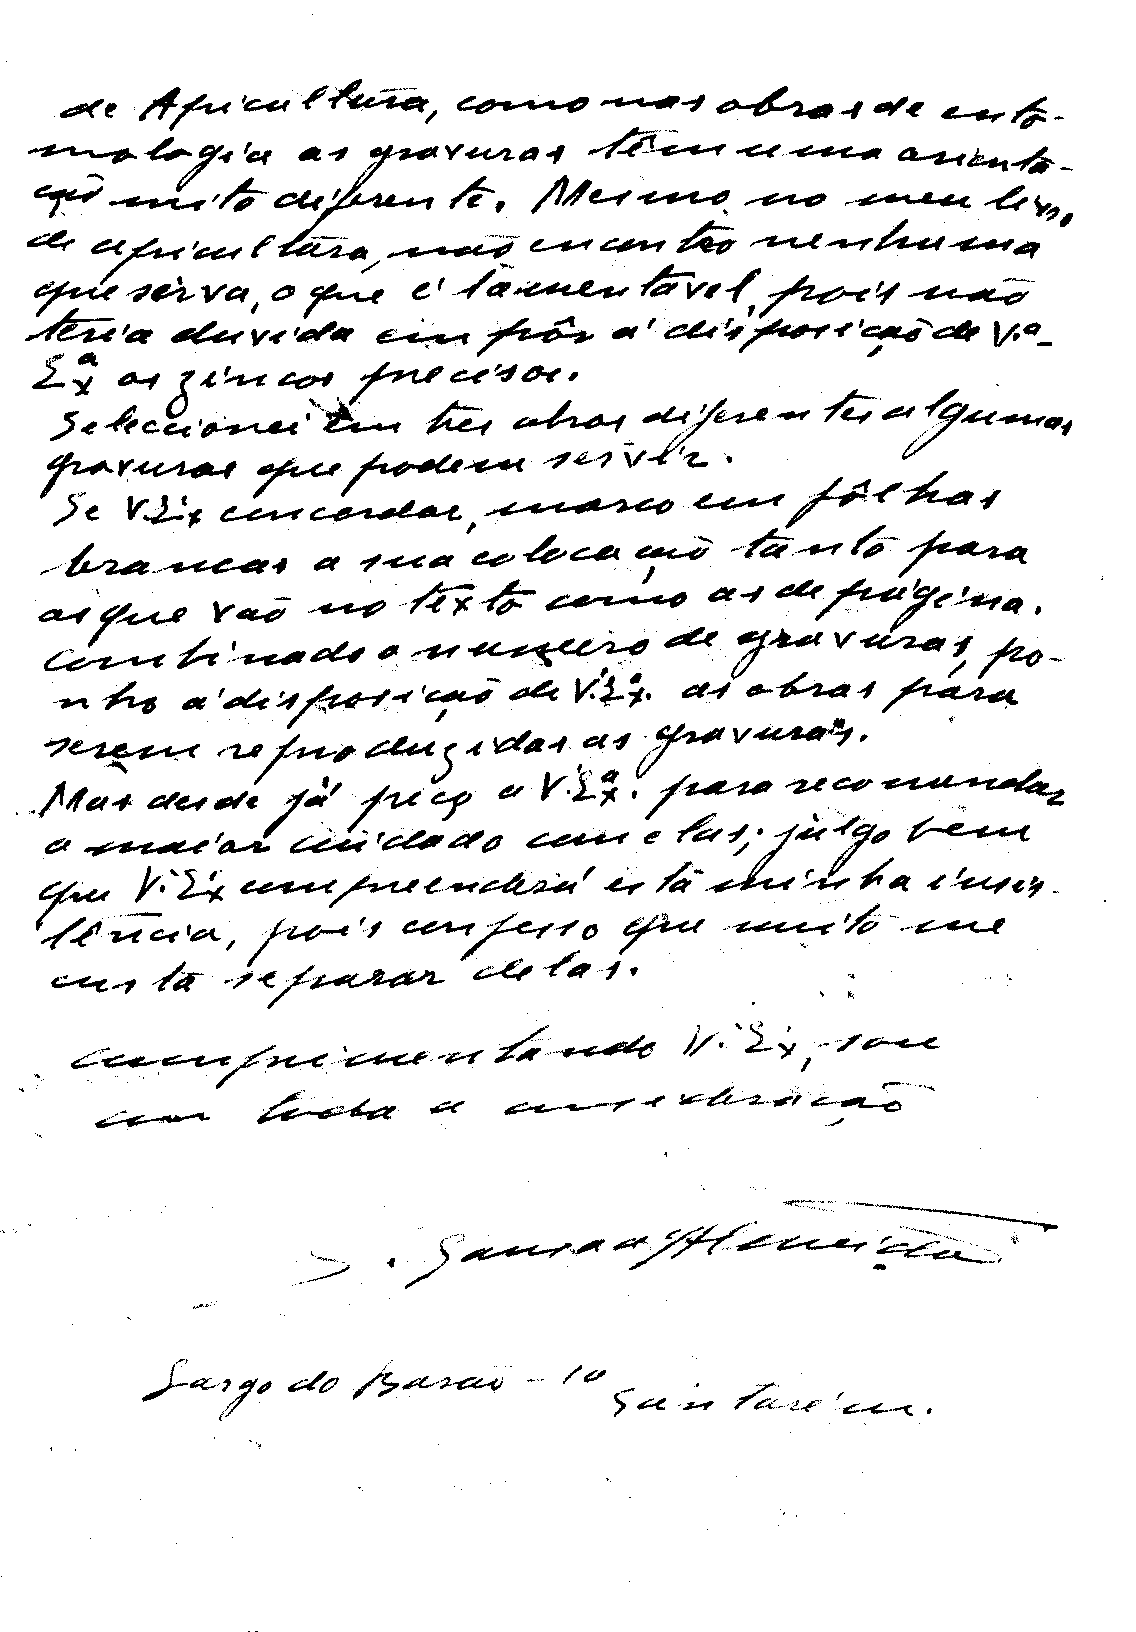 de Apicultura, como nas obras de ento-
mologia as gravuras têm uma orienta-
ção muito diferente. Mesmo no meu livro
de apicultura, não encontro nenhuma
que sirva, o que é lamentável, pois não
teria duvida em pôr á disposição de V.ª
Exª os zincos precisos.
Seleccionei em tres obras diferentes algumas
gravuras que podem servir.
Se V. Ex concordar, marco em fôlhas
brancas a sua colocação tanto para
as que vão no texto como as de página.
Combinado o numero de gravuras, po-
nho á disposição de V. Exª. as obras para
serem reproduzidas as gravuras.
Mas desde já peço a V. Exª. para recomendar
o maior cuidado com elas; julgo bem
que V. Ex compreenderá esta minha insis-
tência, pois confesso que muito me
custa separar delas.
Cumprimentando V. Ex, sou
com toda a consideração
Almeida
Largo do Barão - 10
Santarém.